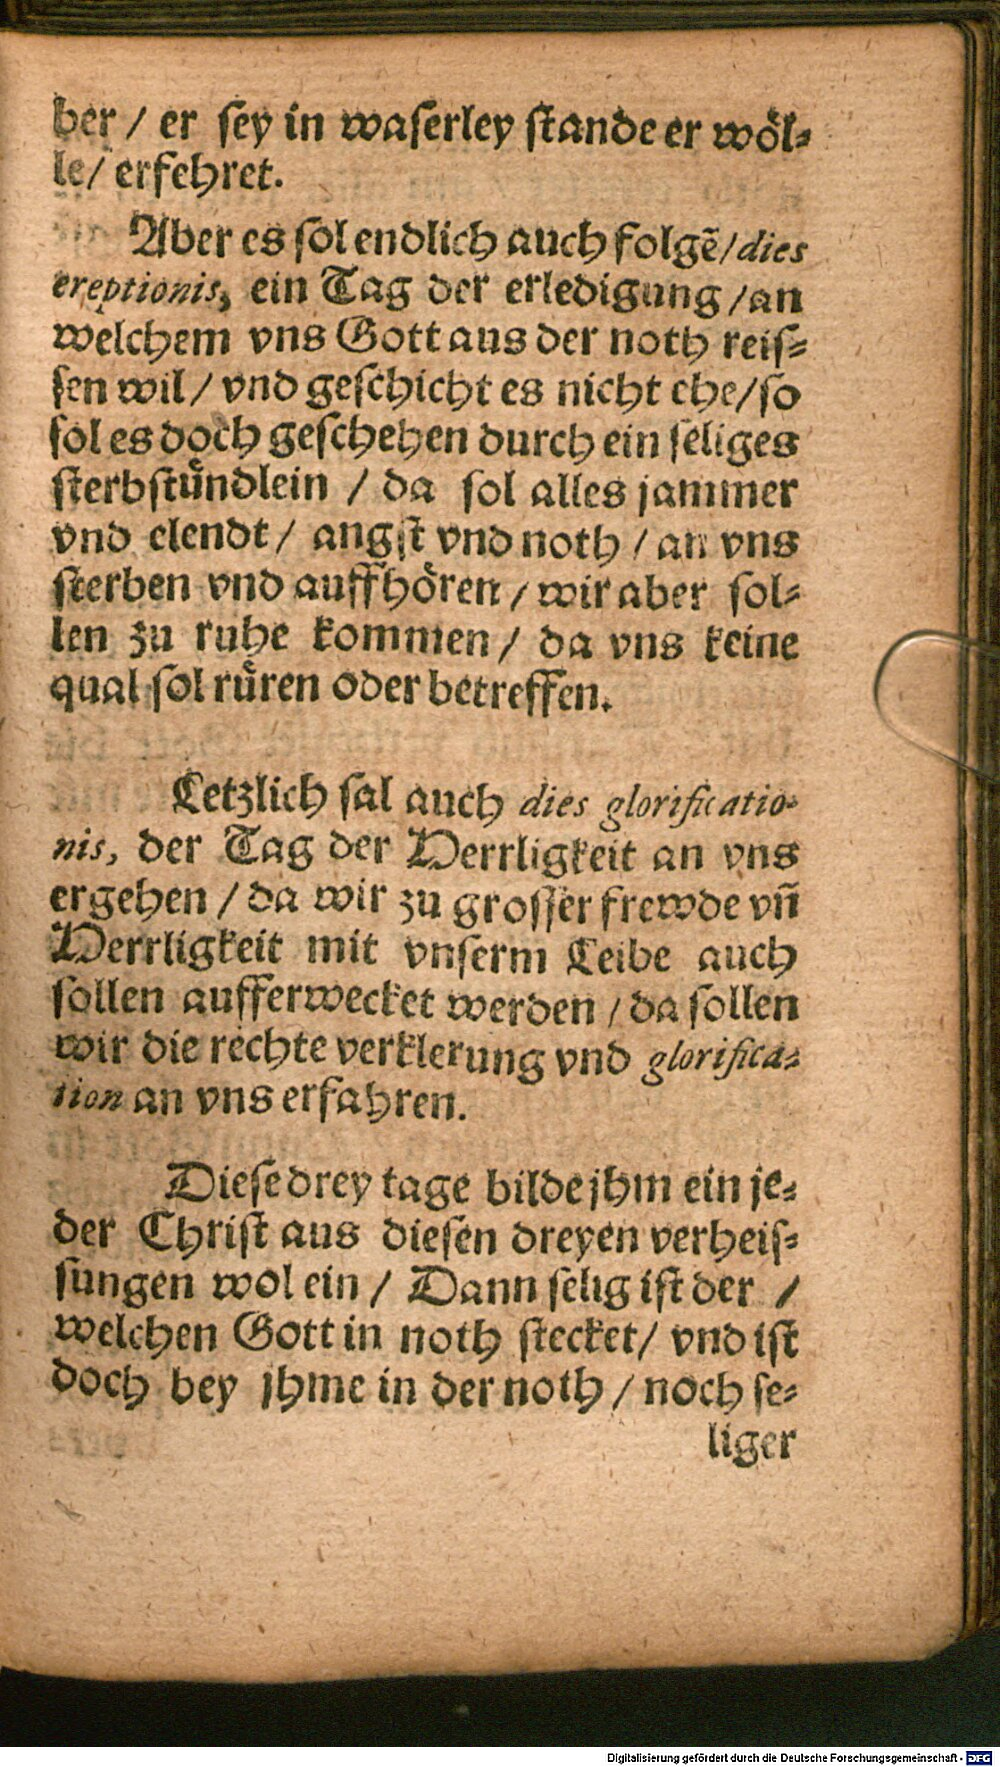 ber / er sey in waserley stande er wöl-
le / erfehret.
Aber es sol endlich auch folgẽ / dies
ereptionis, ein Tag der erledigung / an
welchem vns Gott aus der noth reis-
sen wil / vnd geschicht es nicht ehe / so
sol es doch geschehen durch ein seliges
sterbstůndlein / da sol alles jammer
vnd elendt / angst vnd noth / an vns
sterben vnd auffhören / wir aber sol-
len zu ruhe kommen / da vns keine
qual sol růren oder betreffen.
Letzlich sal auch dies glorificatio-
nis, der Tag der Herrligkeit an vns
ergehen / da wir zu grosser frewde vñ
Herrligkeit mit vnserm Leibe auch
sollen aufferwecket werden / da sollen
wir die rechte verklerung vnd glorifica-
tion an vns erfahren.
Diese drey tage bilde jhm ein je-
der Christ aus diesen dreyen verheis-
sungen wol ein / Dann selig ist der /
welchen Gott in noth stecket / vnd ist
doch bey jhme in der noth / noch se-
liger
Digitalisierung gefördert durch die Deutsche Forschungsgemeinschaft - DFG